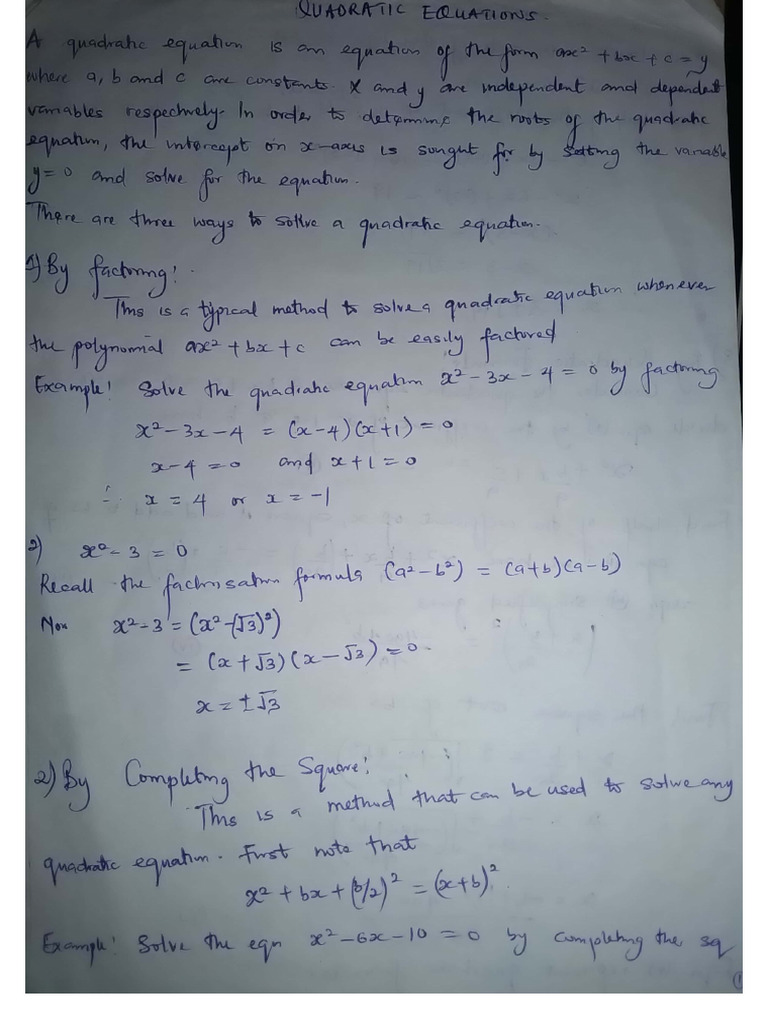 QUADRATIC EQUATIONS.
A quadratic equation is an equation of the form ax² + bx + c = y
where a, b and c are constants. x and y are independent and dependent
variables respectively. In order to determine the roots of the quadratic
equation, the intercept on x-axis is sought for by setting the variable
y = 0 and solve for the equation.
There are three ways to solve a quadratic equation.
1) By factoring:
This is a typical method to solve a quadratic equation whenever
the polynomial ax² + bx + c can be easily factored
Example: Solve the quadratic equation x² - 3x - 4 = 0 by factoring
x² - 3x - 4 = (x - 4)(x + 1) = 0
x - 4 = 0 and x + 1 = 0
∴ x = 4 or x = -1
2) x² - 3 = 0
Recall the factorisation formula (a² - b²) = (a + b)(a - b)
Now x² - 3 = (x² - (√3)²)
= (x + √3)(x - √3) = 0.
x = ±√3
2) By Completing the Square:
This is a method that can be used to solve any
quadratic equation. First note that
x² + bx + (b/2)² = (x + b)².
Example: Solve the eqn x² - 6x - 10 = 0 by completing the sq